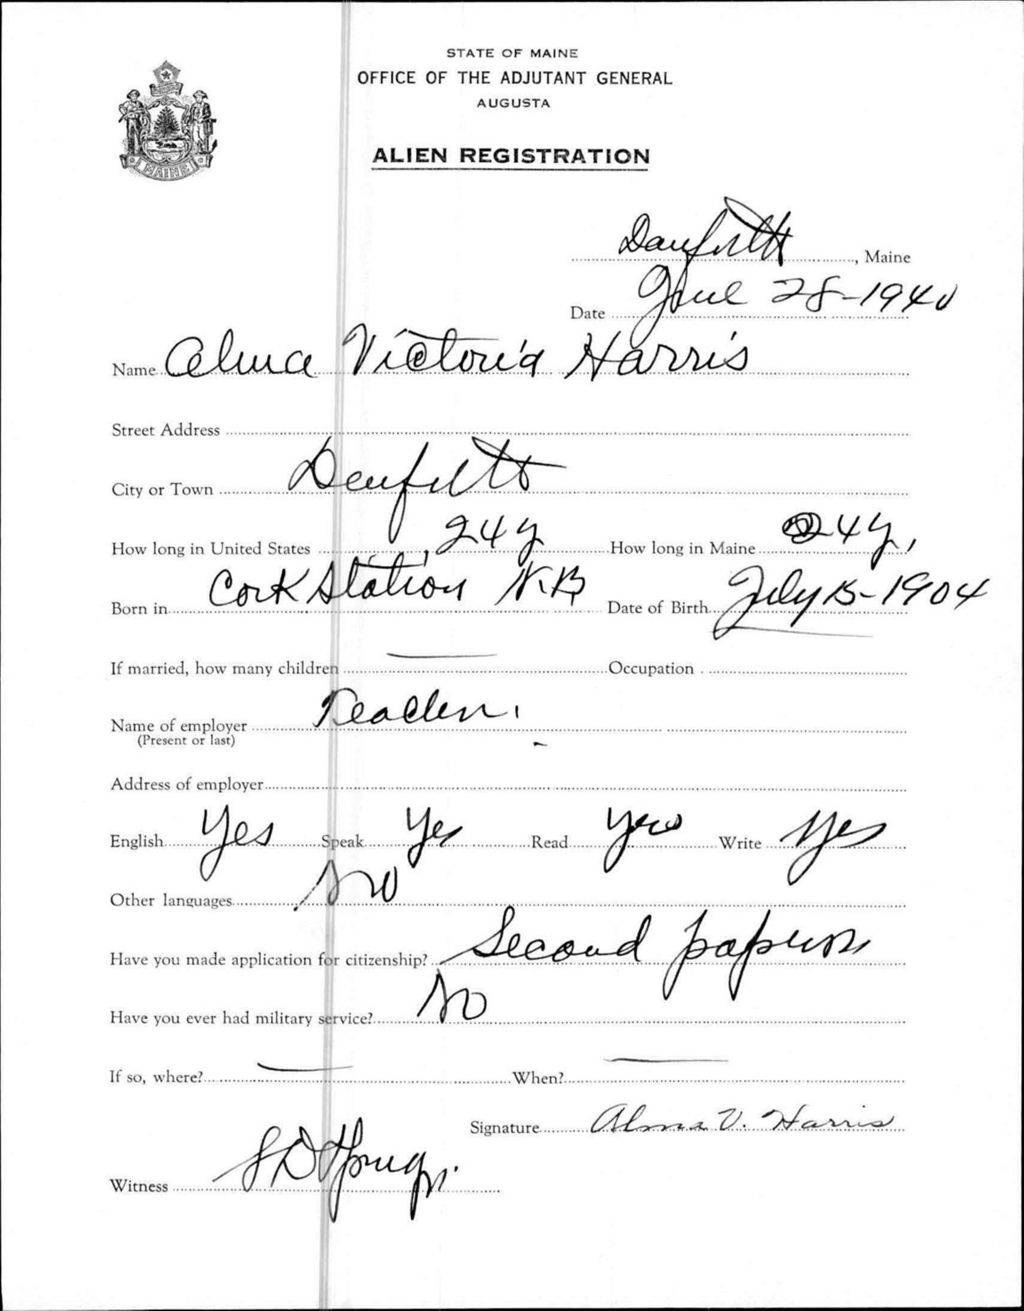 STATE OF MAINE
OFFICE OF THE ADJUTANT GENERAL
AUGUSTA
ALIEN REGISTRATION
MAINE
Danforth, Maine
Date June 28-1940
Name Alma Victoria Harris
Street Address
City or Town Danforth
How long in United States 24 y How long in Maine 24 y,
Born in Cork Station N.B Date of Birth July 15-1904
If married, how many children Occupation
Name of employer
(Present or last)
Address of employer
English Yes Speak Yes Read Yes Write Yes
Other languages No
Have you made application for citizenship? Second papers
Have you ever had military service? No
If so, where? When?
Signature Alma V. Harris
Witness